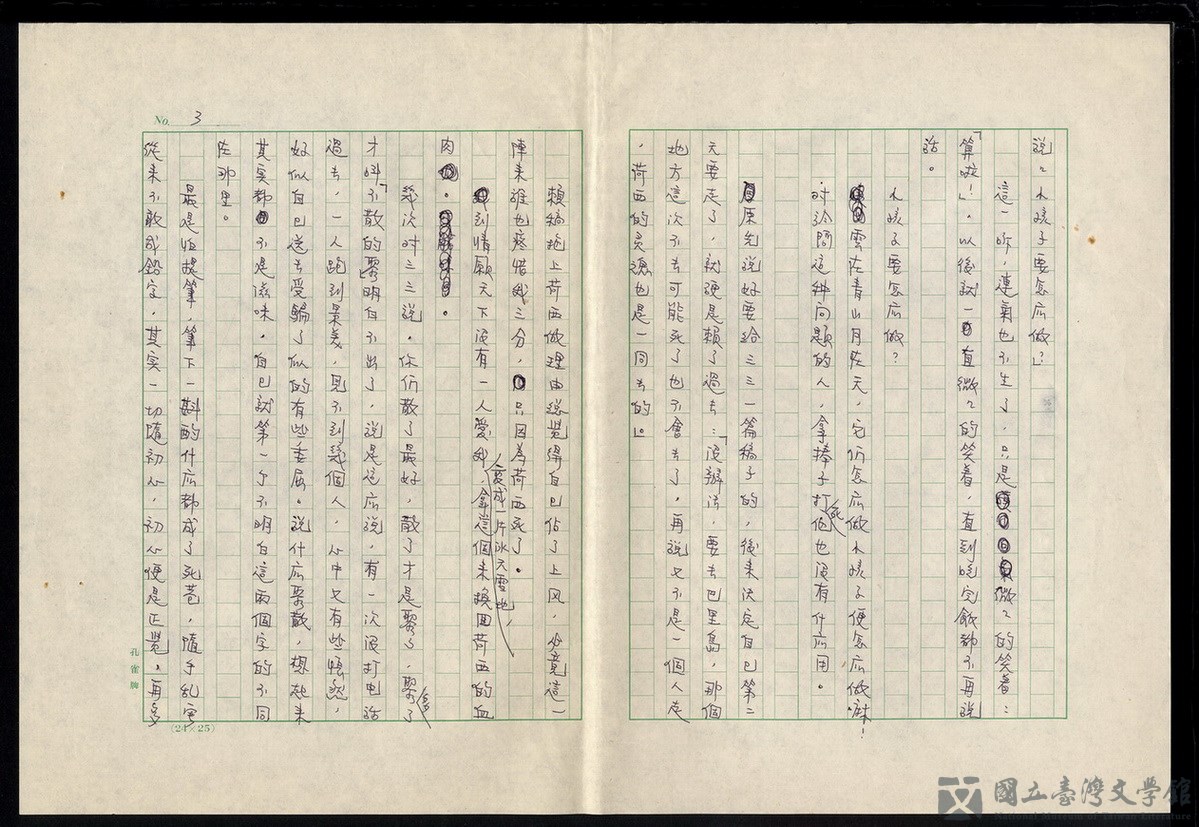 No. 3
說：小孩子要怎应做？」
這一吓，連氣也不生了，只是微々的笑着：
「算啦！」。以後就一直微々的笑着，直到吃完飯都不再說
話。
小孩子要怎应做？
雲在青山月在天，它们怎应做小孩子便怎应做嘛！
对於問這种问題的人，拿捧子打死他也没有什应用。
原先說好要给三三一篇稿子的，後来决定自己第二
天要走了，就硬是賴了過去：「没辦法，要去巴里島，那個
地方這次不去可能死了也不會去了，再說又不是一個人走
，荷西的灵魂也是一同去的。」
賴稿抱上荷西做理由總覺得自己佔了上风，必竟這一
陣来誰也疼惜我三分，只因為荷西死了。
到情願天下没有一人愛我，變成一片冰天雪地，拿這個来换回荷西的血
肉。
幾次对三三說，你们散了最好，散了才是聚了，聚了
才叫不散的黎明自不出了，說是這应說，有一次没打电話
過去，一人跑到景美，見不到幾個人，心中又有些悵然，
好似自己送去受騙了似的有些委屈。說什应聚散，想起来
其实都不是滋味，自己就第一个不明白這兩個字的不同
在那里。
最是怕提筆，筆下一斟酌什应都成了死巷，隨手乱写
從来不敢成鉛字，其实一切隨初心，初心便是正覺，再多
孔雀牌
(24×25)
國立臺灣文學館
National Museum of Taiwan Literature